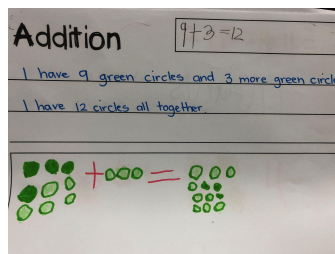 Addition
9+3=12
I have 9 green circles and 3 more green circle
I have 12 circles all together.
+ =